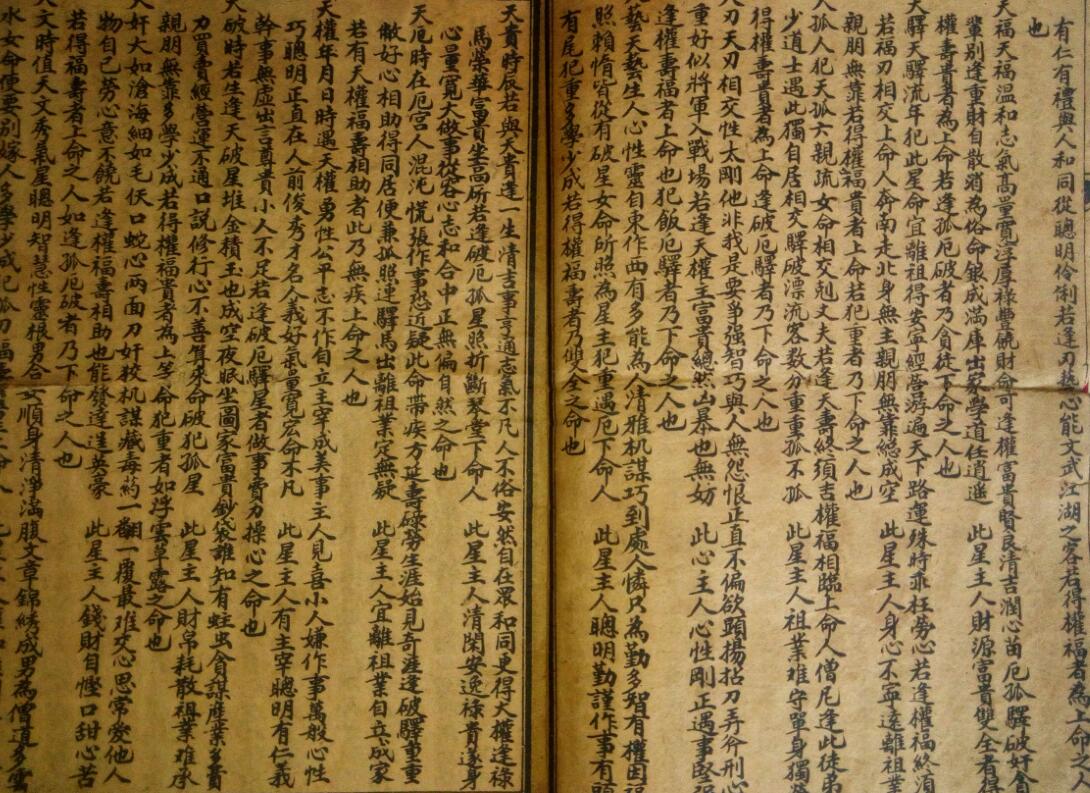 有仁有禮與人和同從聰明伶俐若逢刃藝心能文武江湖之客若得權福者為上命之人
也
天福天福溫和志氣高量寬浮厚祿豐饒財帛可逢權富貴賢良清吉潤心苗厄孤驛破奸貪
輩別逢重財自散消為俗命銀成滿庫出家學道任逍遙 此星主人財源富貴雙全者得
權壽貴者為上命若逢孤厄破者乃貪徒下命之人也
天驛天驛流年犯此星命宜離祖得安寧經營游遍天下路運殊時乖枉勞心若逢權福終須
若福刃相交上命人奔南走北身無主親朋無靠總成空 此星主人身心不寧遠離祖業
親朋無靠若得權福貴者上命若犯重者乃下命之人也
天孤人犯天孤六親疏女命相交剋丈夫若逢天壽終須吉權福相臨上命人僧尼逢此徒弟
少道士遇此獨自居相交驛破漂流客数分重重孤不孤 此星主人祖業难守單身獨
得權壽貴者為上命逢破厄驛者乃下命之人也
天刃天刃相交性太剛他非我是要爭強智巧與人無怨恨正直不偏欲顕揚拈刀弄斧刑心
重好似將軍入戰場若逢天權主富貴總然凶暴也無妨 此心主人心性剛正遇事堅强
逢權壽福者上命也犯飯厄驛者乃下命之人也
天藝天藝生人心性靈自東作西有多能為人清雅机謀巧到處人憐只為勤多智有權因福
照賴惰皆從有破星女命所照為星主犯重遇厄下命人 此星主人聰明勤謹作事有頭
有尾犯重多學少成若得權福壽者乃雙全之命也
天貴時辰若與天貴逢一生清吉事亨通志氣不凡人不俗安然自在眾和同更得天權逢祿
馬榮華富貴坐高所若逢破厄孤星照折斷琴堂下命人 此星主人清閑安逸祿貴遂身
心量寬大做事從容心志和合中正無偏自然之命也
天厄時在厄宮人混沌慌張作事恐近疑此命帶疾方延壽碌勞生涯始見奇涯逢破驛重重
敝好心相助得同居便兼孤照連驛馬出離祖業定無疑 此星主人宜離祖業自立成家
若有天權福壽相助者此乃無疾上命之人也
天權年月日時遇天權勇性公平志不作自立主宰成美事主人見喜小人嫌作事萬般心性
巧聰明正直在人前俊秀才名人義好氣量寬宏命不凡 此星主人有主宰聰明有仁義
幹事無虛出言尊貴小人不足若逢破厄驛星者做事賣力操心之命也
天破時若生逢天破星堆金積玉也成空夜眠坐圖家富貴鈔袋誰知有蛀虫貪謀產業多費
刀買賣經營運不通口說修行心不善算來命破犯孤星 此星主人財帛耗散祖業難承
親朋無靠多學少成若得權福貴者為上等命犯重者如浮雲草露之命也
天奸大如滄海細如毛佛口蛇心兩面刀奸狡机謀藏毒葯一翻一覆最难交心思常受他人
物自己勞心意不饒若逢權福壽相助也能發達逞英豪 此星主人錢財自慳口甜心苦
若得福壽者上命之人如逢孤厄破者乃下命之人也
天文時值天文秀氣星聰明智慧性靈根男合女順身清淨滿腹文章錦綉成男為僧道多雲
水女命便要別嫁人多學少成犯孤刃福